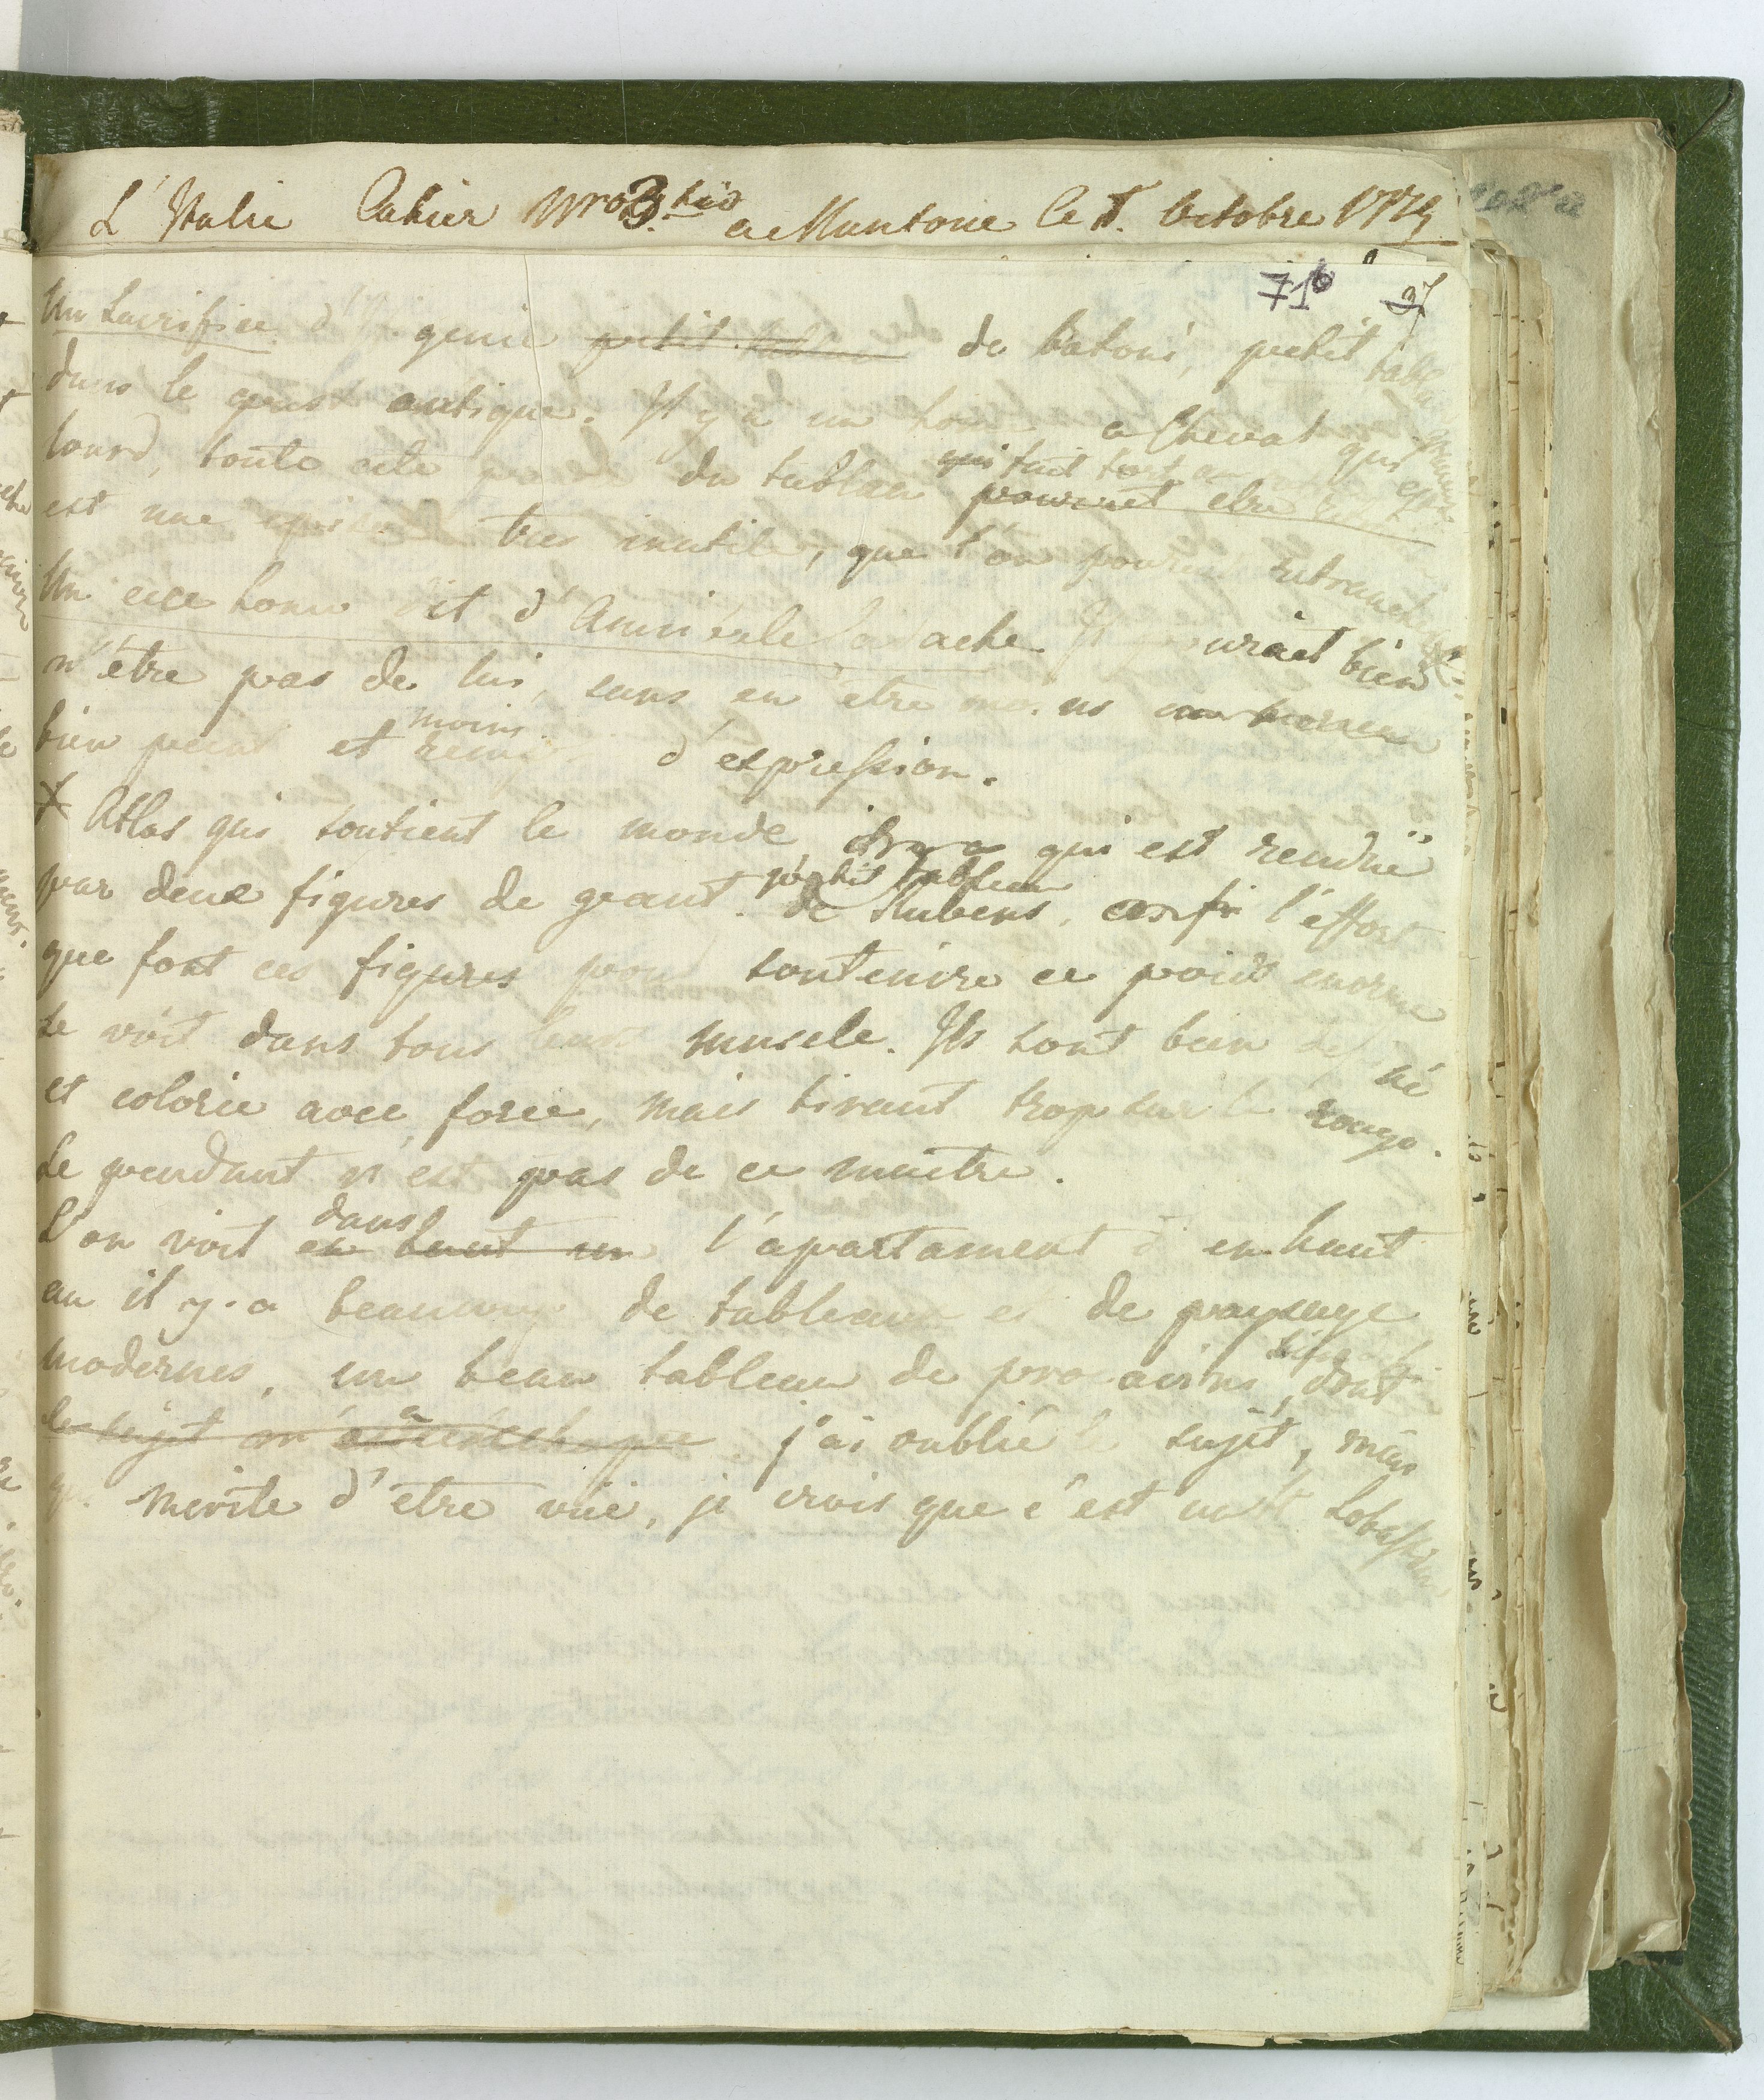 L'Italie Cahier Nro 3. bis a Mantoue le 1. Octobre 1774
71b 37
Un Sacrifice d' genie petit de batoni, petit tableau
dans le goust antique. Il y a un hom a Cheval qui
lourd, toute cete du tableau qui fait tort au
pouroit etre
est une tres inutile, que l'on pouroit retrancher
Un ecce homo dit d'Annibale Carache. Il pourait bien
n'être pas de lui, sans en être moins un morceau
bien peint et moins rempli d'expression.
X Atlas qui soutient le monde qui est rendüe
par deux figures de geant. petit tableau de Rubens, l'effort
que font ces figures pour soutenire ce poids enorme
se voit dans tous leurs muscle. Ils sont bien dessiné
et colorie avec force, mais tirant trop sur le rouge.
Le pendant n'est pas de ce maitre.
L'on voit en haut un dans l'apartament d'enhaut
au il y a beaucoup de tableaux et de paysage
modernes, un beau tableau de procacins, dont
le sujet m'a j'ai oublié le sujet, mais
qui merite d'être vüe, je crois que c'est un St Sebastian